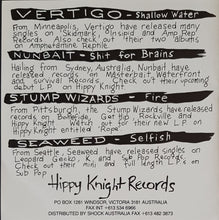 VERTIGO - Shallow Water
From Minneapolis, Vertigo have released many
singles on Skidmark, and Amp Rep
Records. Also check on their two albums
on Amphetamine Reptile.
NUNBAIT - Shit for Brains
Hailing from Sydney, Australia, Nunbait have
released records on Waterfront
and survival Records. Check out their upcoming
debut L.P. on Hippy Knight.
STUMP WIZARDS - Fire
From Pittsburgh, the Stump Wizards have released
records on Get Hip
and Hippy Knight. Watch out for their L.P. on
Hippy Knight entitled Rope
SEAWEED - Selfish
From Seattle, Seaweed have released singles on
Leopard Gecko, K, and Sub Pop Records.
Check out their mini and full length L.P's on
Sub Pop
Hippy Knight Records
PO BOX 1261 WINDSOR, VICTORIA 3181 AUSTRALIA
FAX INT +613 534 5966
DISTRIBUTED BY SHOCK AUSTRALIA FAX +613 482 3873